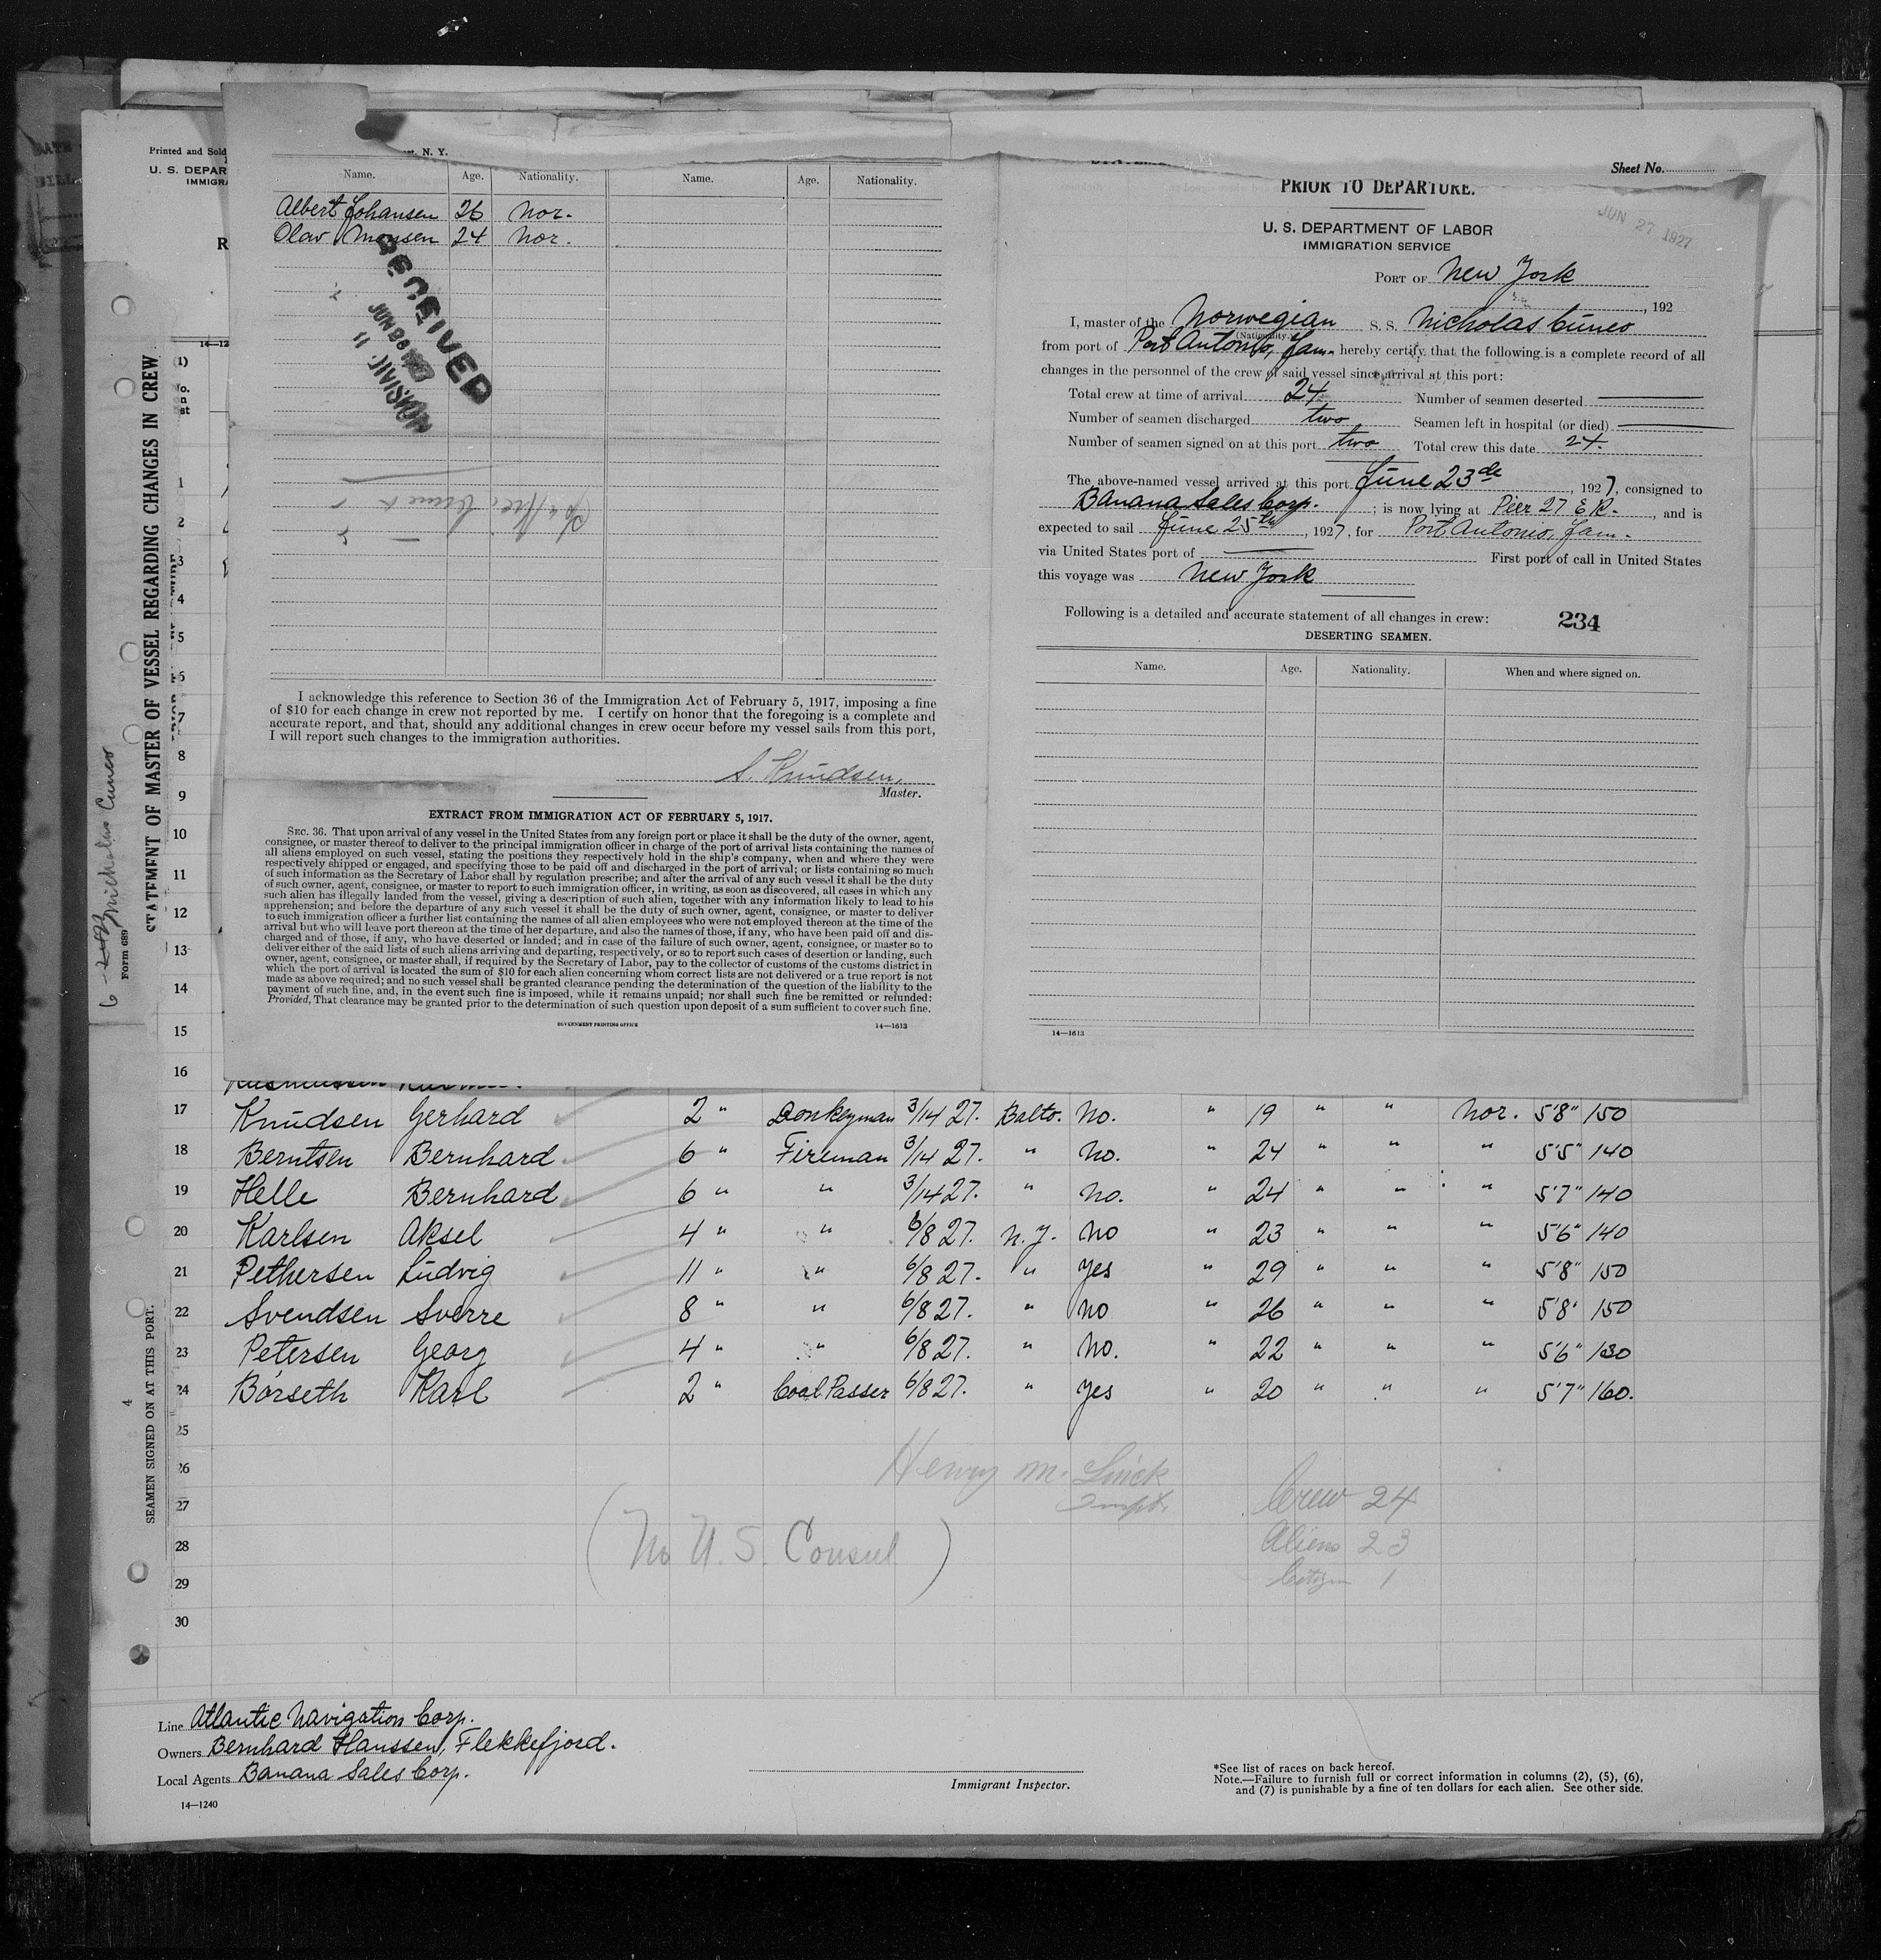 Printed and Sold
U. S. DEPAR
IMMIGRA
N. Y.
Name. Age. Nationality. Name. Age. Nationality.
Albert Johansen 26 Nor.
Olav Monsen 24 Nor.
RECEIVED
DIVISION 11
I acknowledge this reference to Section 36 of the Immigration Act of February 5, 1917, imposing a fine
of $10 for each change in crew not reported by me. I certify on honor that the foregoing is a complete and
accurate report, and that, should any additional changes in crew occur before my vessel sails from this port,
I will report such changes to the immigration authorities.
S. Knudsen,
Master.
EXTRACT FROM IMMIGRATION ACT OF FEBRUARY 5, 1917.
SEC. 36. That upon arrival of any vessel in the United States from any foreign port or place it shall be the duty of the owner, agent,
consignee, or master thereof to deliver to the principal immigration officer in charge of the port of arrival lists containing the names of
all aliens employed on such vessel, stating the positions they respectively hold in the ship's company, when and where they were
respectively shipped or engaged, and specifying those to be paid off and discharged in the port of arrival; or lists containing so much
of such information as the Secretary of Labor shall by regulation prescribe; and after the arrival of any such vessel it shall be the duty
of such owner, agent, consignee, or master to report to such immigration officer, in writing, as soon as discovered, all cases in which any
such alien has illegally landed from the vessel, giving a description of such alien, together with any information likely to lead to his
apprehension; and before the departure of any such vessel it shall be the duty of such owner, agent, consignee, or master to deliver
to such immigration officer a further list containing the names of all alien employees who were not employed thereon at the time of the
arrival but who will leave port thereon at the time of her departure, and also the names of those, if any, who have been paid off and dis-
charged and of those, if any, who have deserted or landed; and in case of the failure of such owner, agent, consignee, or master so to
deliver either of the said lists of such aliens arriving and departing, respectively, or so to report such cases of desertion or landing, such
owner, agent, consignee, or master shall, if required by the Secretary of Labor, pay to the collector of customs of the customs district in
which the port of arrival is located the sum of $10 for each alien concerning whom correct lists are not delivered or a true report is not
made as above required; and no such vessel shall be granted clearance pending the determination of the question of the liability to the
payment of such fine, and, in the event such fine is imposed, while it remains unpaid; nor shall such fine be remitted or refunded:
Provided, That clearance may be granted prior to the determination of such question upon deposit of a sum sufficient to cover such fine.
GOVERNMENT PRINTING OFFICE 14—1613
Sheet No.
PRIOR TO DEPARTURE.
JUN 27 1927
U. S. DEPARTMENT OF LABOR
IMMIGRATION SERVICE
PORT OF New York
, 192
I, master of the Norwegian S. S. Nicholas Cuneo
(Nationality.)
from port of Port Antonio, Jam. hereby certify that the following is a complete record of all
changes in the personnel of the crew of said vessel since arrival at this port:
Total crew at time of arrival 24 Number of seamen deserted
Number of seamen discharged two Seamen left in hospital (or died)
Number of seamen signed on at this port two Total crew this date 24.
The above-named vessel arrived at this port June 23de, 1927, consigned to
Banana Sales Corp. ; is now lying at Pier 27 E R. , and is
expected to sail June 25th, 1927, for Port Antonio, Jam.
via United States port of First port of call in United States
this voyage was New York
Following is a detailed and accurate statement of all changes in crew: 234
DESERTING SEAMEN.
Name. Age. Nationality. When and where signed on.
14—1613
STATEMENT OF MASTER OF VESSEL REGARDING CHANGES IN CREW
Nicholas Cuneo
Form 689
4
SEAMEN SIGNED ON AT THIS PORT.
1
2
3
4
5
6
7
8
9
10
11
12
13
14
15
16
17 Knudsen Gerhard 2 " Donkeyman 3/14 27. Balto. No. " 19 " " Nor. 5'8" 150
18 Berntsen Bernhard 6 " Fireman 3/14 27. " No. " 24 " " " 5'5" 140
19 Helle Bernhard 6 " " 3/14 27. " No. " 24 " " " 5'7" 140
20 Karlsen Aksel 4 " " 6/8 27. N.Y. No " 23 " " " 5'6" 140
21 Pethersen Ludvig 11 " " 6/8 27. " Yes " 29 " " " 5'8" 150
22 Svendsen Sverre 8 " " 6/8 27. " No " 26 " " " 5'8" 150
23 Petersen Georg 4 " " 6/8 27. " No. " 22 " " " 5'6" 130
24 Börseth Karl 2 " Coal Passer 6/8 27. " Yes " 20 " " " 5'7" 160.
25
26 Henry M.
27 Crew 24
28 (No U. S. Consul) Aliens 23
29 Citizen 1
30
Line Atlantic Navigation Corp.
Owners Bernhard Hanssen, Flekkefjord.
Local Agents Banana Sales Corp.
14—1240
Immigrant Inspector.
*See list of races on back hereof.
Note.—Failure to furnish full or correct information in columns (2), (5), (6),
and (7) is punishable by a fine of ten dollars for each alien. See other side.